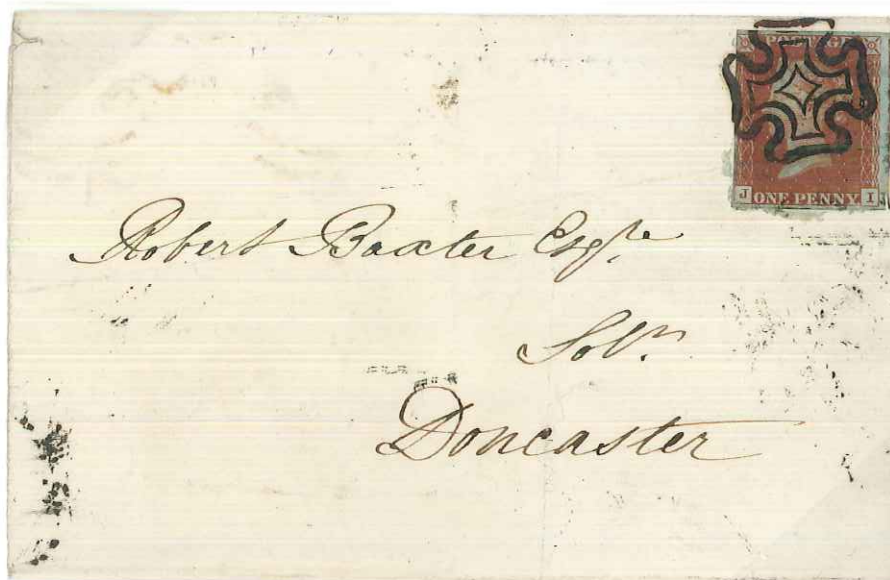 POSTAGE
J ONE PENNY I
Robert Baxter Esqre
Solr.
Doncaster